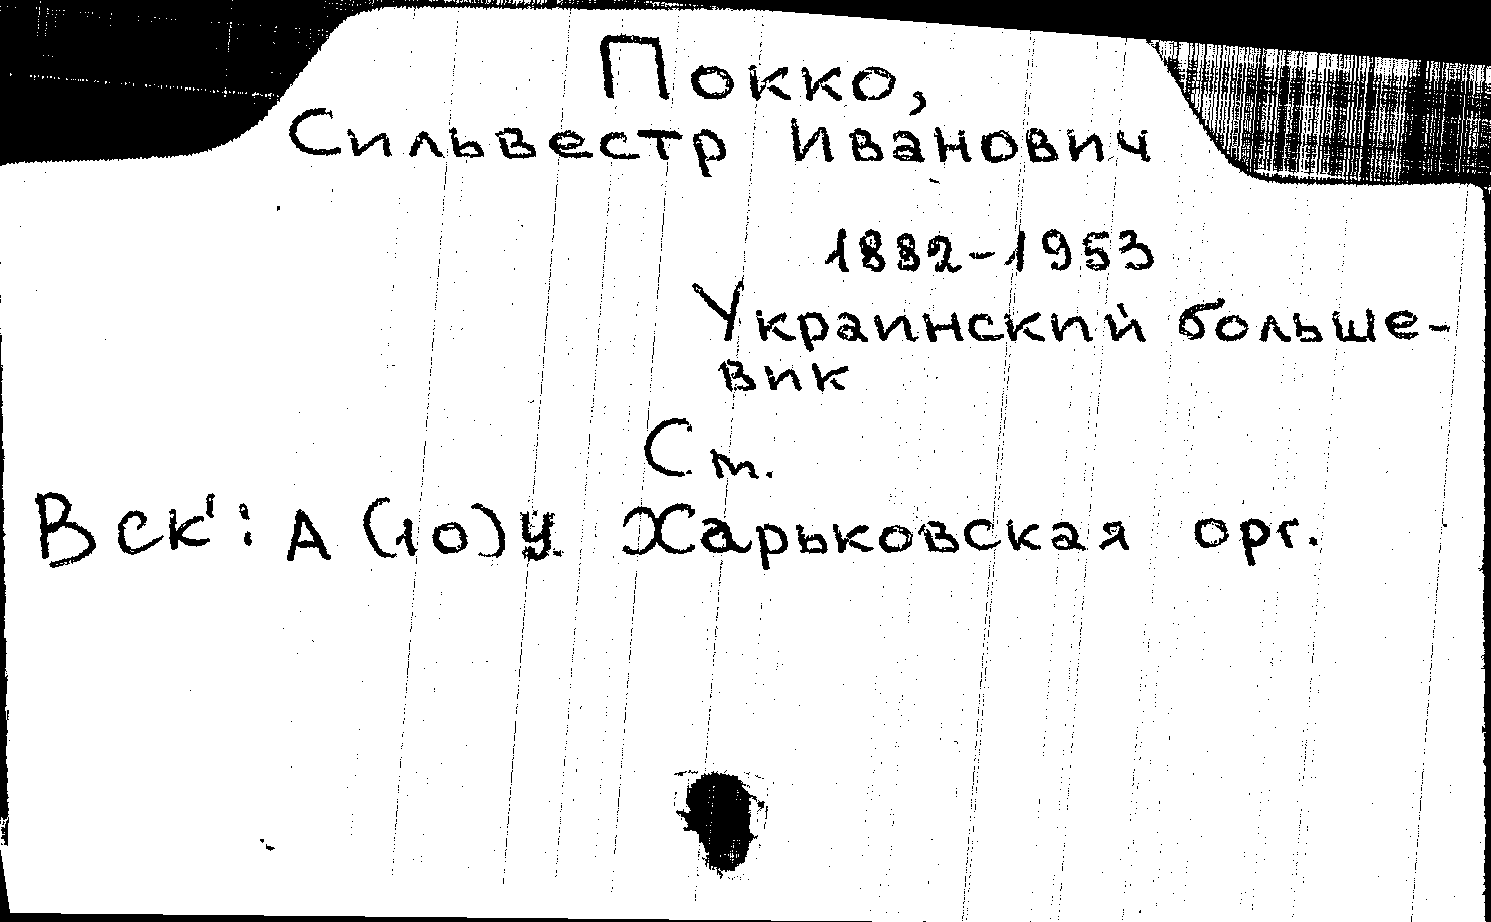 Покко,
Сильвестр Иванович
1882-1953
Украинский больше-
вик
Ст.
Вск: А(10)у. Харьковская орг.